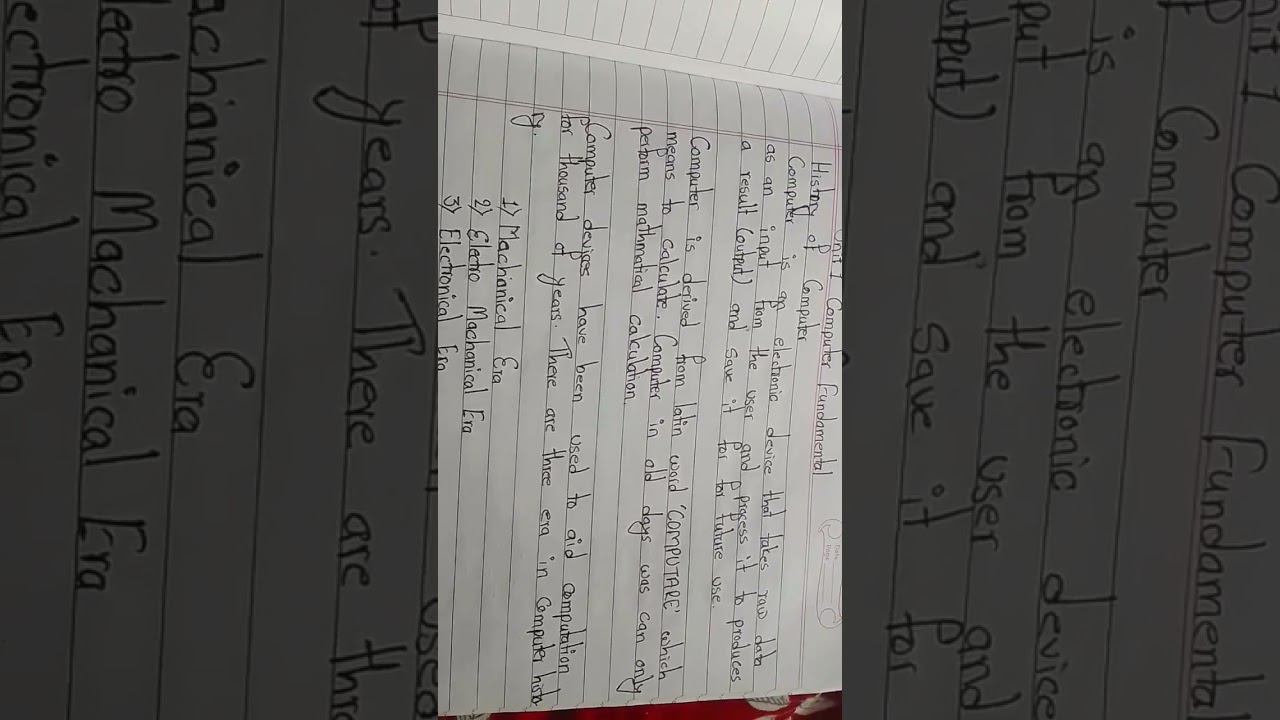 Unit 1 Computer Fundamental
History of Computer
Computer is an electronic device that takes raw data
as an input from the user and process it to produces
a result (output) and save it for for future use.
Computer is derived from latin word 'COMPUTARE' which
means to calculate. Computer in old days was can only
perform mathmatical calculation.
Computer devices have been used to aid computation
for thousand of years. There are three era in Computer histo
ry.
1) Machanical Era
2) Eletro Machanical Era
3) Electronical Era